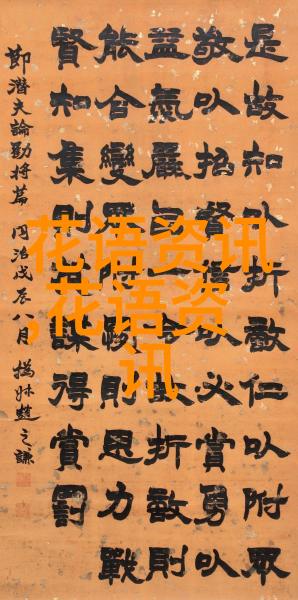 是故知㕥折敵仁㕥附眾
敬㕥招賢信㕥必賞勇㕥
益氣嚴㕥一令故折敵則
能合變眾附則思力戰
賢知集則英謀得賞罰
節潛夫論勸將篇 同治戊辰八月 撝叔趙之謙
花语资讯
,花语资
讯